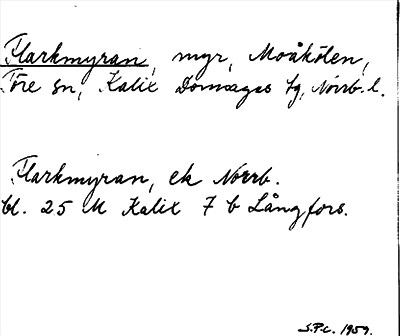 Flarkmyran, myr, Moåkölen,
Töre sn, Kalix Domsagas tg, Norrb. l.
Flarkmyran, ek Norrb.
bl. 25 M Kalix 7 b Långfors.
S.P.L. 1959.